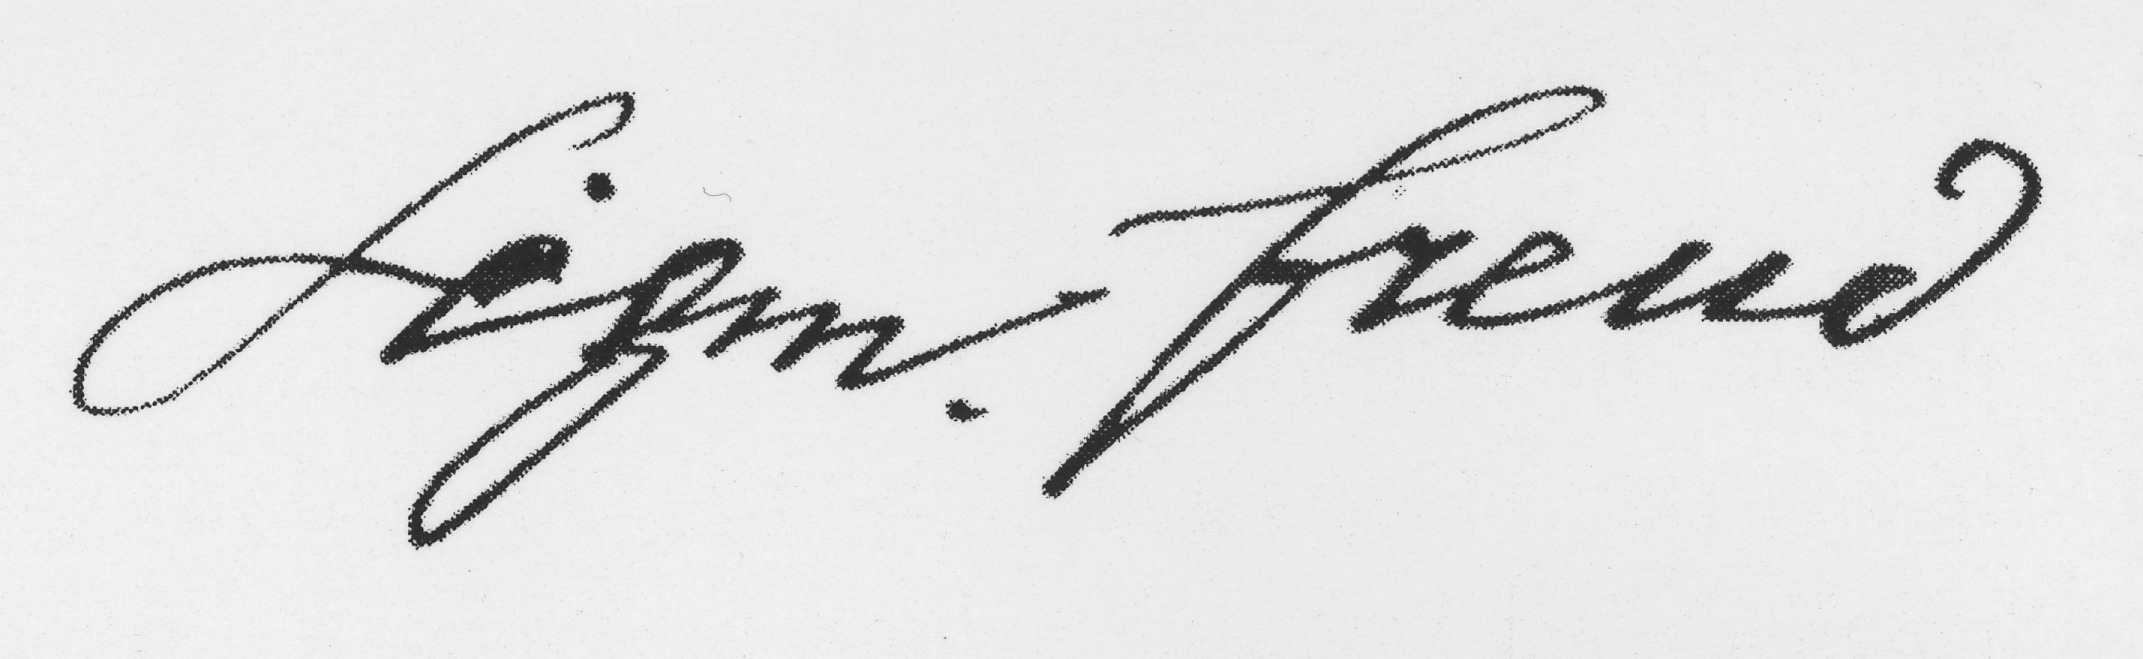 Sigm. Freud